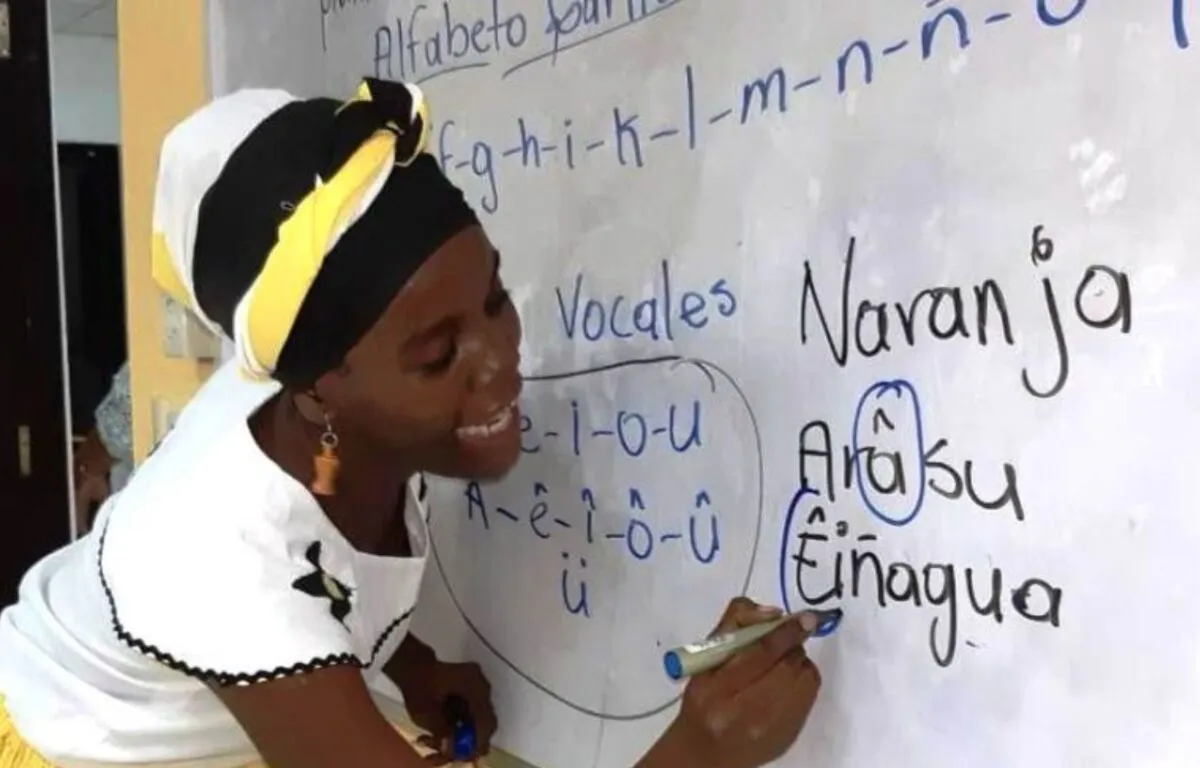 Alfabeto
f-g-h-i-k-l-m-n-ñ-o
Vocales
e-i-o-u
A-ê-î-ô-û
ü
Naranja
Arâsu
Êiñagua